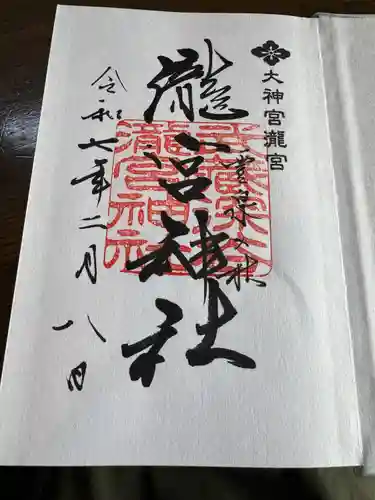 大神宮瀧宮
武蔵深谷
瀧宮神社
瀧宮神社
令和七年二月八日